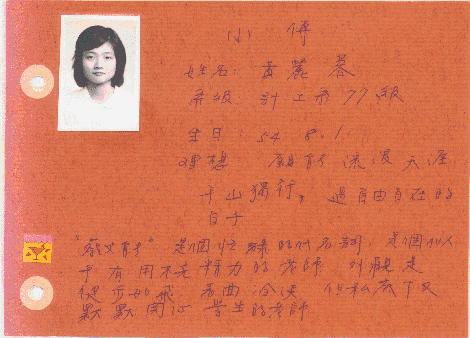 小傳
姓名: 黃麗蓉
系級: 計工系77級
生日: 54. 8. 1.
理想: 願能浪漫天涯
千山獨行, 過自由自在的
日子
是個忙碌的代名詞, 是個似
乎有用不完精力的老師, 外貌是
健步如飛 表面冷漠 但私底下又
默默關心學生的老師